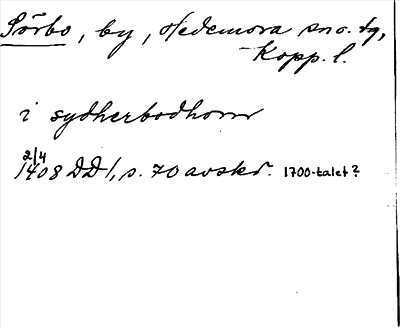 Sörbo, by, Hedemora sn o. tg,
Kopp. l.
i sydherbodhom
2/4
1408 DD 1, s. 70 avskr. 1700-talet?